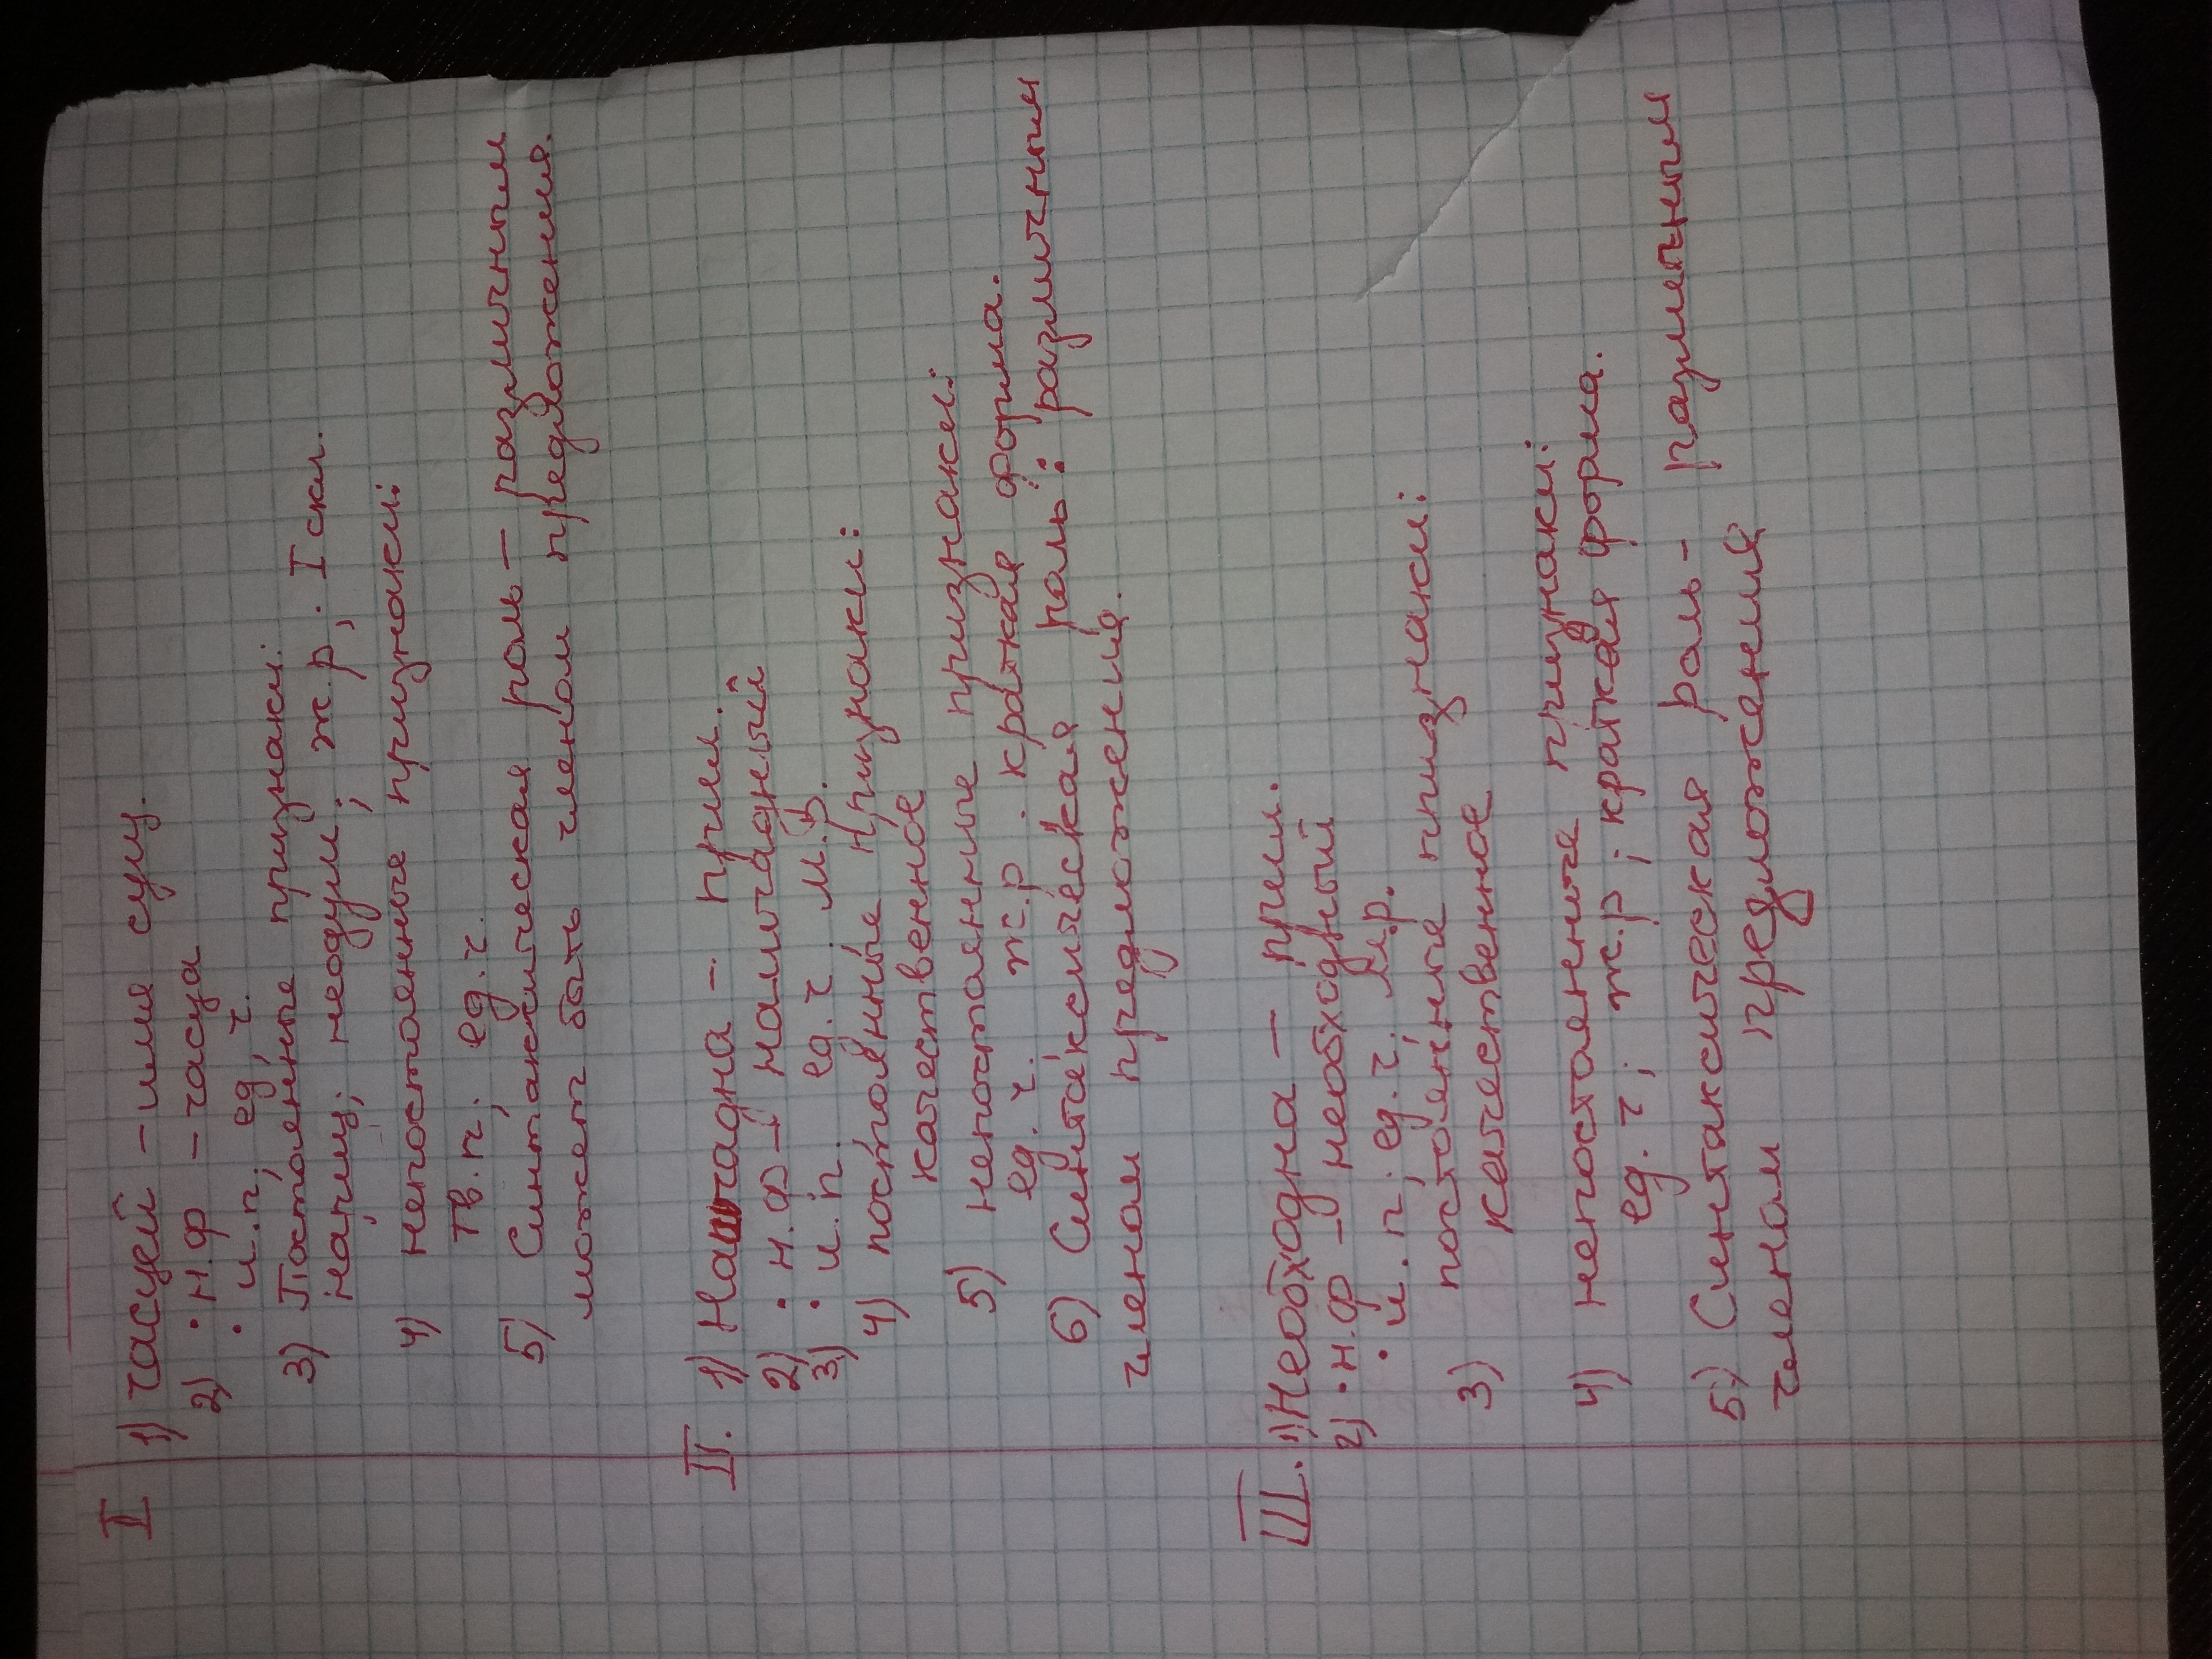 I 1) Часцей – имя сущ.
2) • н.ф – часца
• и.п, ед ч.
3) Постоянные признаки:
нариц; неодуш; ж.р, . I скл.
4) непостоянные признаки:
Тв.п. ед.ч.
5) Синтаксическая роль – различным
может быть членом предложения.
II. 1) Наштадна – прил.
2) • н.ф –
3) • и.п. ед.ч, м.р.
4) постоянные признаки:
качественное
5) непостоянные признаки:
ед.ч. ж.р. краткая форма.
6) Синтаксическая роль: различным
членом предложения.
III. 1) Необходна – прил.
2) • н.ф – необходный
• и.п, ед.ч, м.р.
3) постоянные признаки:
качественное
4) непостоянные признаки:
ед.ч; ж.р; краткая форма.
5) Синтаксическая роль – различным
членом предложения